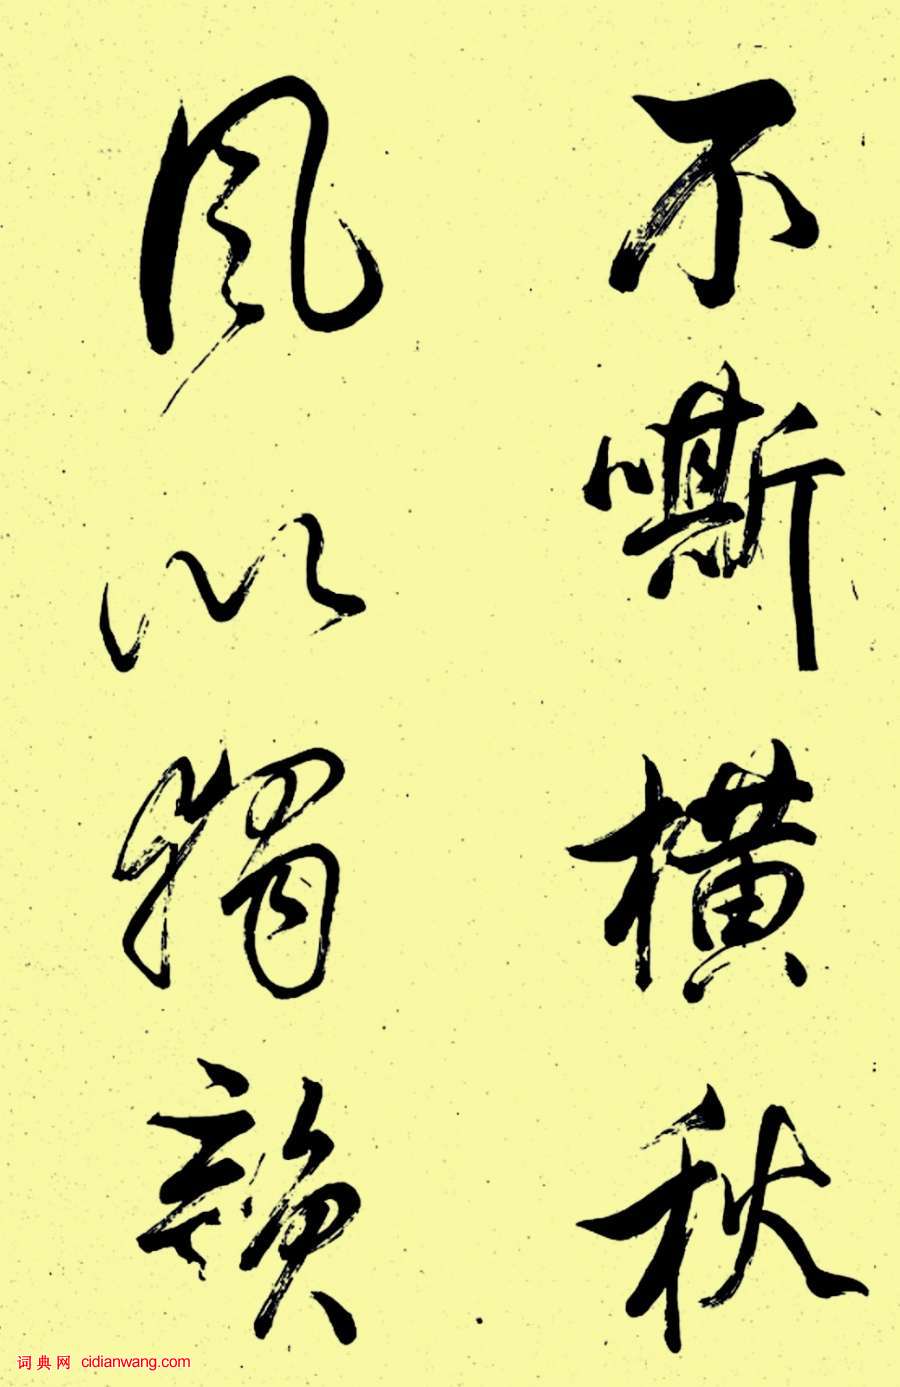 不嘶横秋
风以独韻
词典网 cidianwang.com